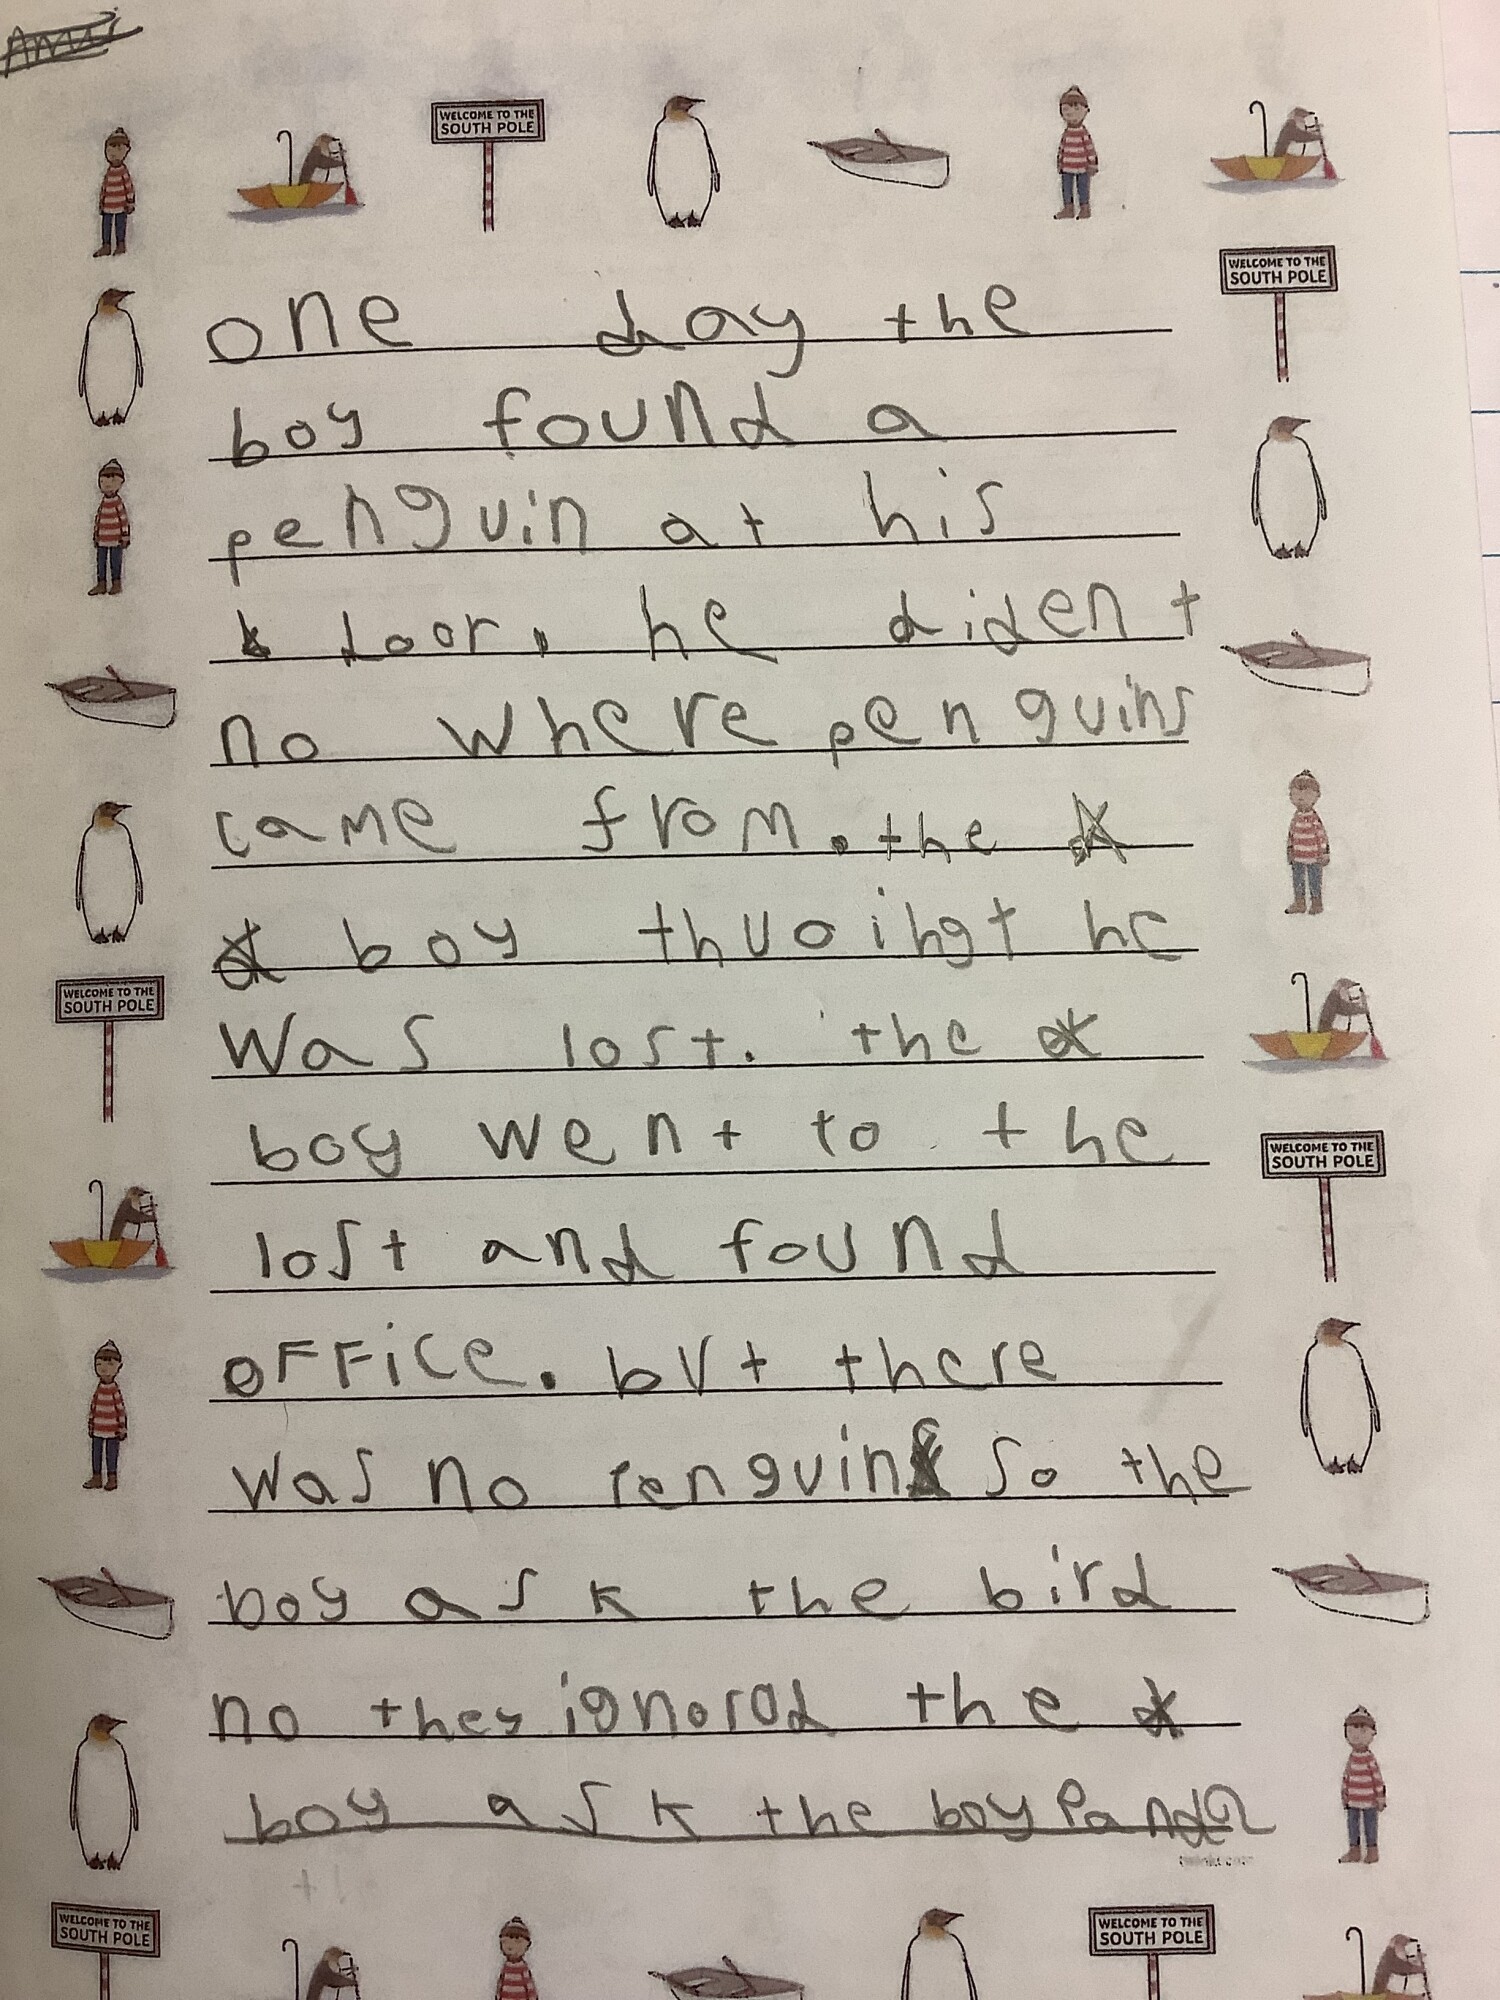 WELCOME TO THE
SOUTH POLE
WELCOME TO THE
SOUTH POLE
one day the
boy found a
penguin at his
door. he dident
no where penguins
came from. the
boy thuoihgt he
was lost. the
WELCOME TO THE
SOUTH POLE
boy went to the
WELCOME TO THE
SOUTH POLE
lost and found
oFFice. but there
was no penguins so the
boy ask the bird
no they ignorad the
boy ask the boy
WELCOME TO THE
SOUTH POLE
WELCOME TO THE
SOUTH POLE